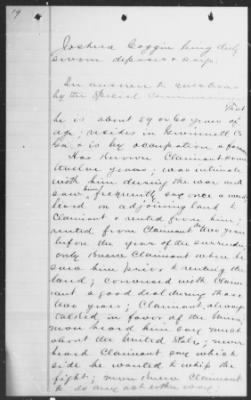 19
Joshua Goggin being duly
sworn deposes & says.
In answer to questions
by the Special Commissioner
That
he is about 59 or 60 years of
age; resides in Gwinnett Co
Ga, & is by occupation a farmer
Has known Claimant some
twelve years; was intimate
with him during the war and
saw him frequently say once a week
lived on adjoining land to
Claimant & rented from him;
rented from Claimant two years
before the year of the surrender
only knew Claimant when he
saw him prior to renting the
land; conversed with Claim
ant a good deal during those
two years; Claimant always
talked in favor of the Union
never heard him say much
about the United States; never
heard Claimant say which
side he wanted to whip the
fight; never knew Claimant
to do any act either way;